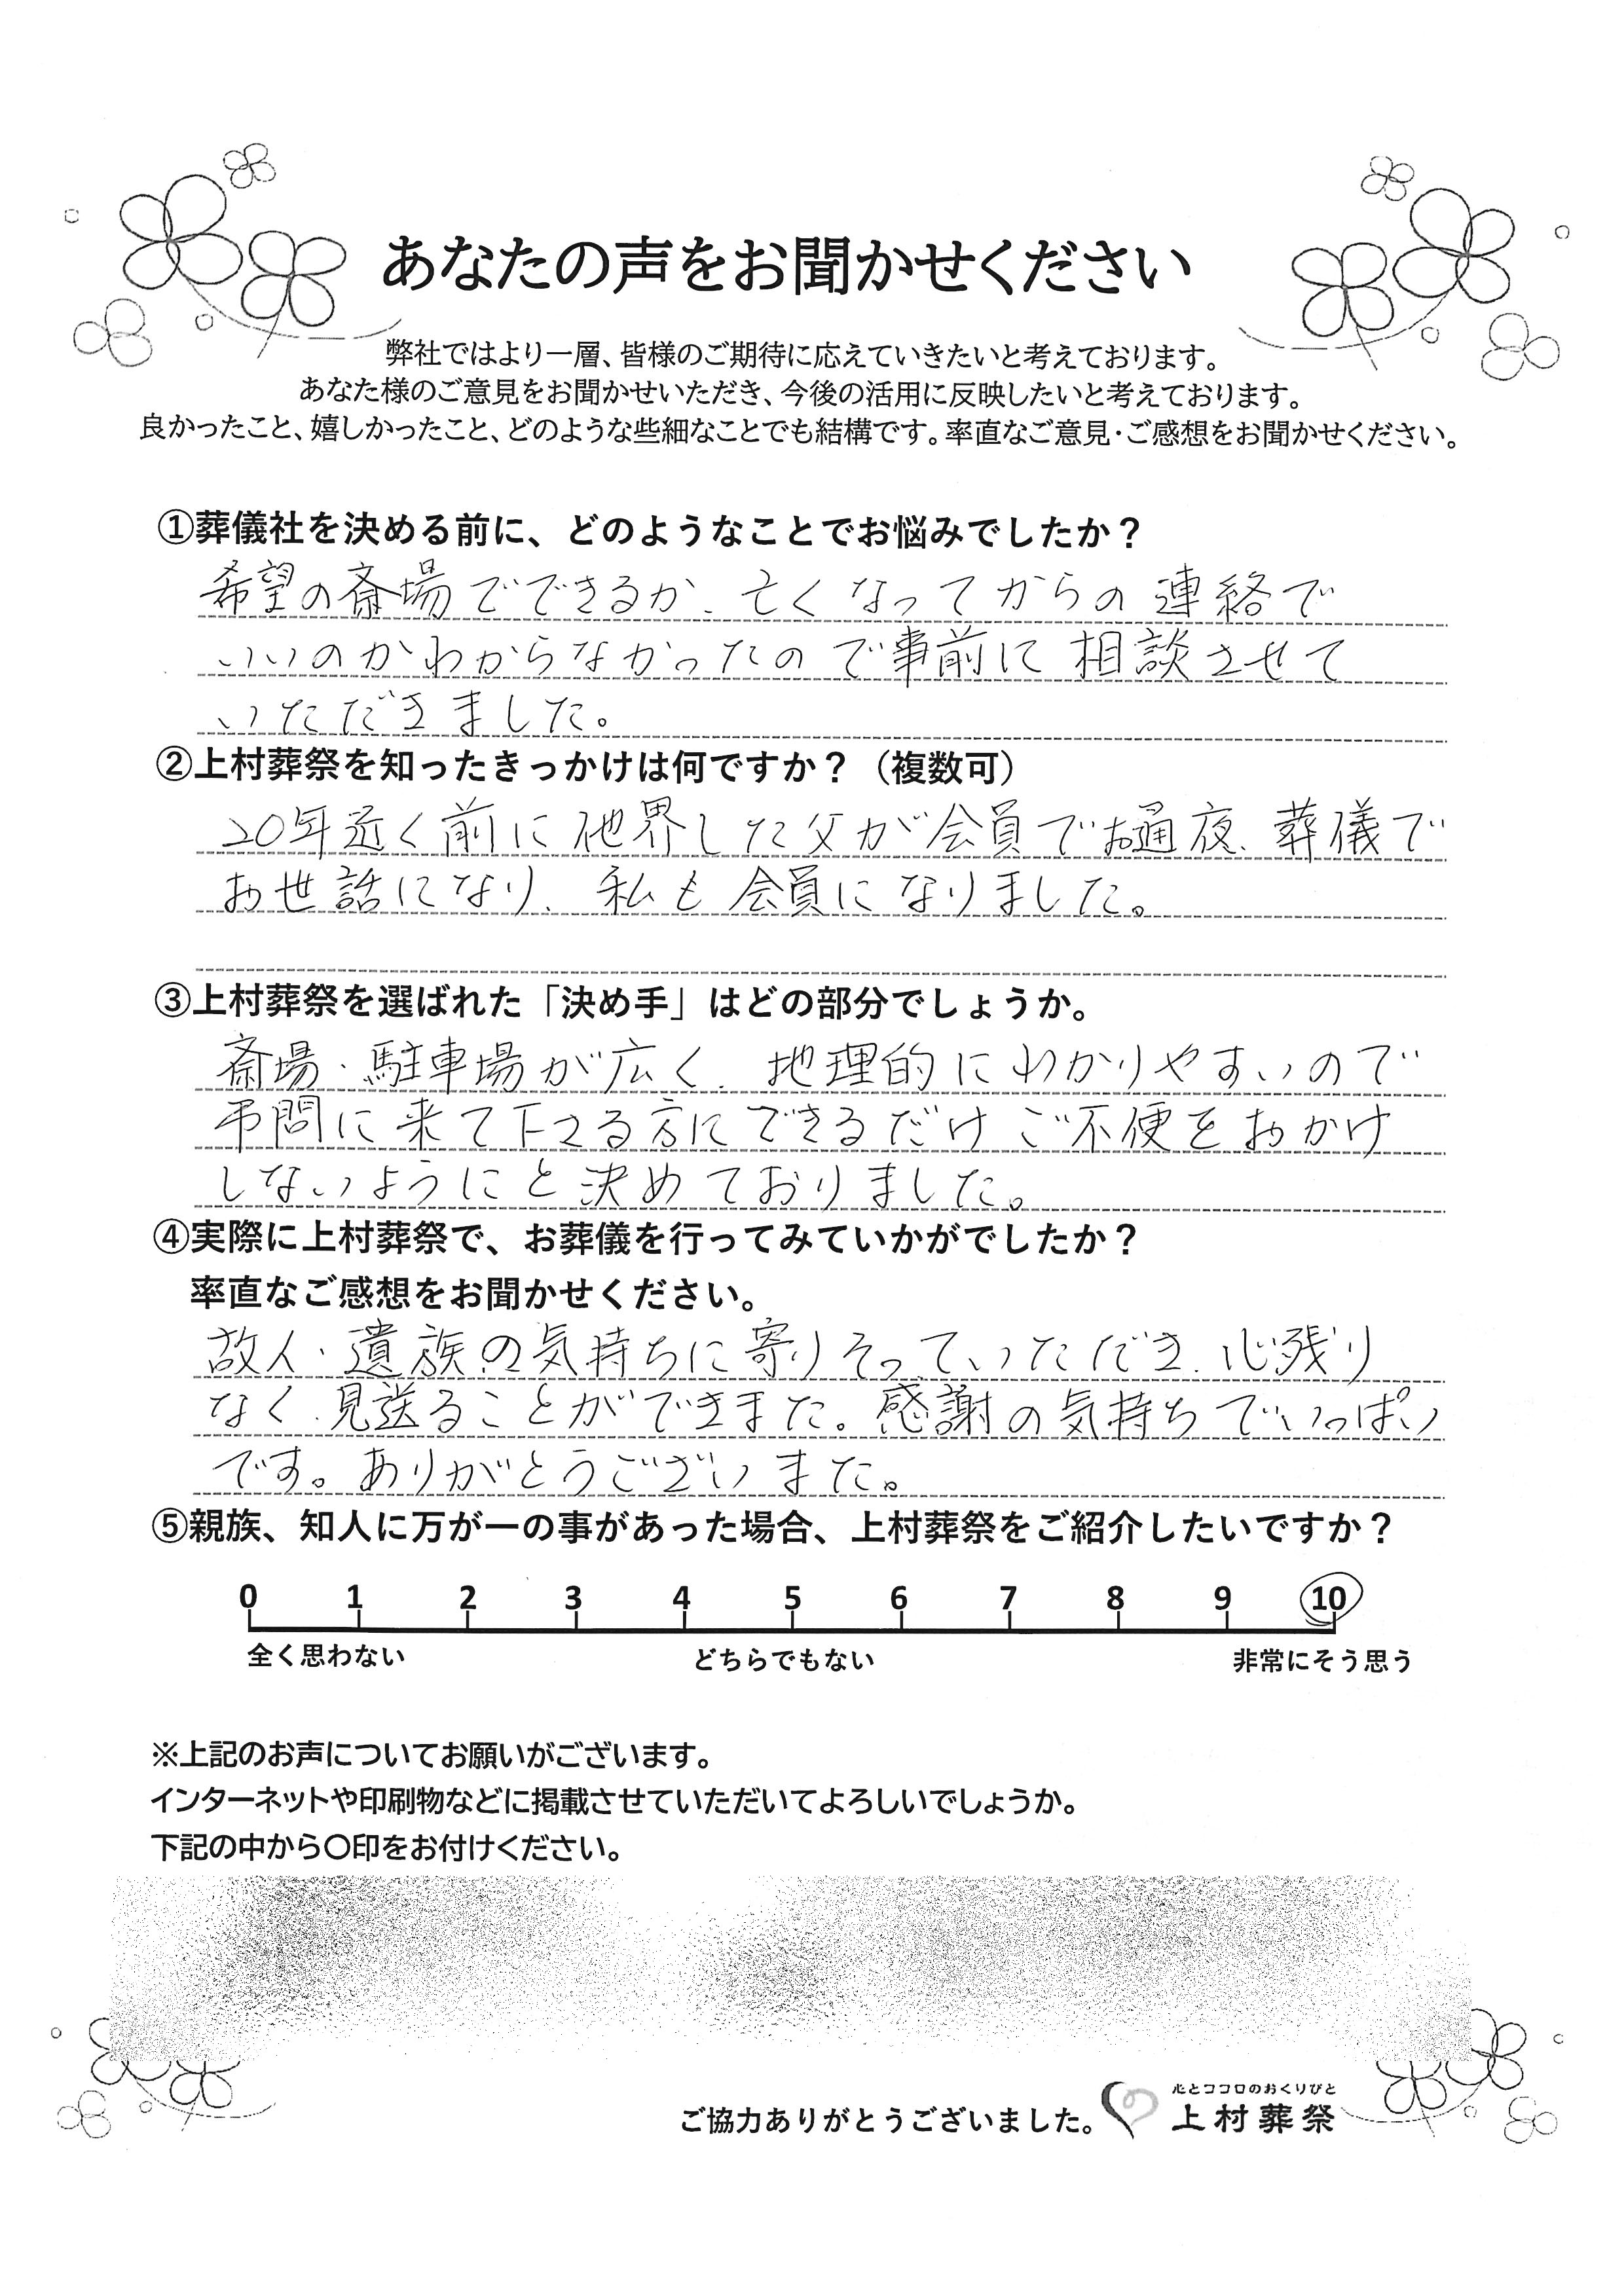 あなたの声をお聞かせください
弊社ではより一層、皆様のご期待に応えていきたいと考えております。
あなた様のご意見をお聞かせいただき、今後の活用に反映したいと考えております。
良かったこと、嬉しかったこと、どのような些細なことでも結構です。率直なご意見・ご感想をお聞かせください。
①葬儀社を決める前に、どのようなことでお悩みでしたか？
希望の斎場でできるか、亡くなってからの連絡で
いいのかわからなかったので事前に相談させて
いただきました。
②上村葬祭を知ったきっかけは何ですか？（複数可）
20年近く前に他界した父が会員でお通夜、葬儀で
お世話になり、私も会員になりました。
③上村葬祭を選ばれた「決め手」はどの部分でしょうか。
斎場・駐車場が広く、地理的にわかりやすいので
弔問に来て下さる方にできるだけご不便をおかけ
しないようにと決めておりました。
④実際に上村葬祭で、お葬儀を行ってみていかがでしたか？
率直なご感想をお聞かせください。
故人・遺族の気持ちに寄りそっていただき、心残り
なく、見送ることができまた。感謝の気持ちでいっぱい
です。ありがとうございまた。
⑤親族、知人に万が一の事があった場合、上村葬祭をご紹介したいですか？
0 1 2 3 4 5 6 7 8 9 10
全く思わない どちらでもない 非常にそう思う
※上記のお声についてお願いがございます。
インターネットや印刷物などに掲載させていただいてよろしいでしょうか。
下記の中から〇印をお付けください。
心とココロのおくりびと
ご協力ありがとうございました。 上村葬祭